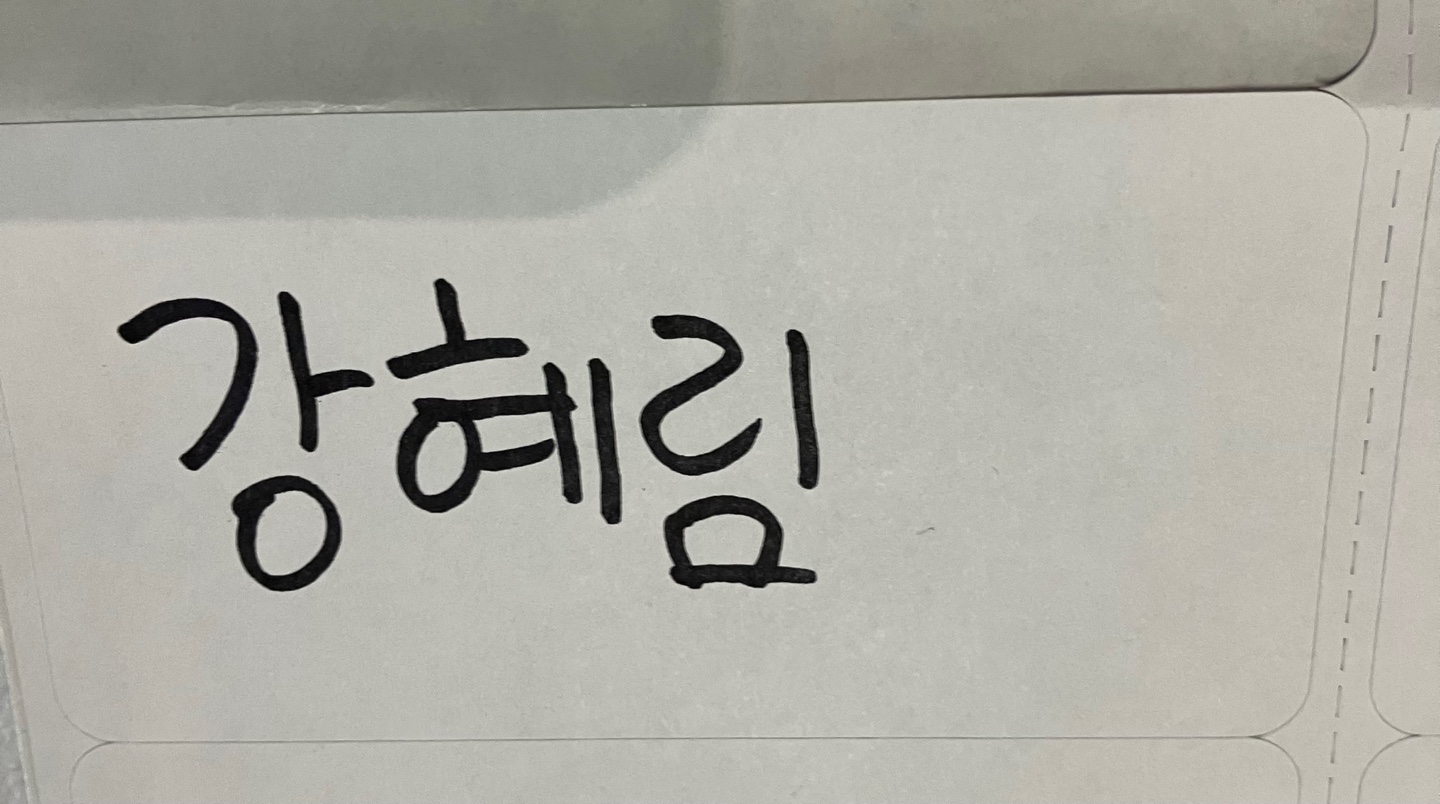 강혜림